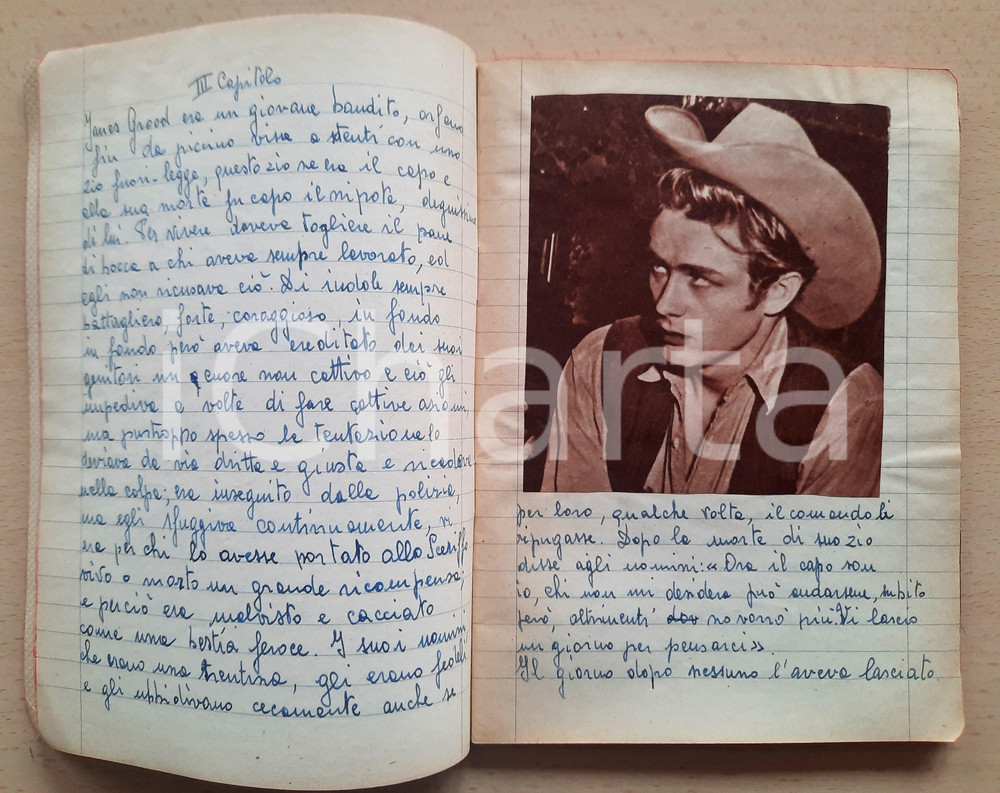 III Capitolo
James Grood era un giovane bandito, orfano
fin da piccino visse a stenti con uno
zio fuori-legge, questo zio ne era il capo e
alla sua morte fu capo il nipote, degnissimo
di lui. Per vivere doveva togliere il pane
di bocca a chi aveva sempre lavorato, ed
egli non ricusava ciò. Di indole sempre
battagliero, forte, coraggioso, in fondo
in fondo però aveva ereditato dai suoi
genitori un cuore non cattivo e ciò gli
impediva a volte di fare cattive azioni,
ma purtroppo spesso la tentazione lo
deviava da via dritta e giusta e ricadeva
nella colpa; era inseguito dalla polizia,
ma egli sfuggiva continuamente, vi
era per chi lo avesse portato allo Sceriffo
vivo o morto un grande ricompensa;
e perciò era malvisto e cacciato
come una bestia feroce. I suoi uomini
che erano una trentina, gli erano fedeli
e gli ubbidivano cecamente anche se
per loro, qualche volta, il comando li
ripugasse. Dopo la morte di suo zio
disse agli uomini: «Ora il capo son
io, chi non mi desidera può andarsene, subito
però, altrimenti no vorrò più. Vi lascio
un giorno per pensarci».
Il giorno dopo nessuno l'aveva lasciato.
iCharta